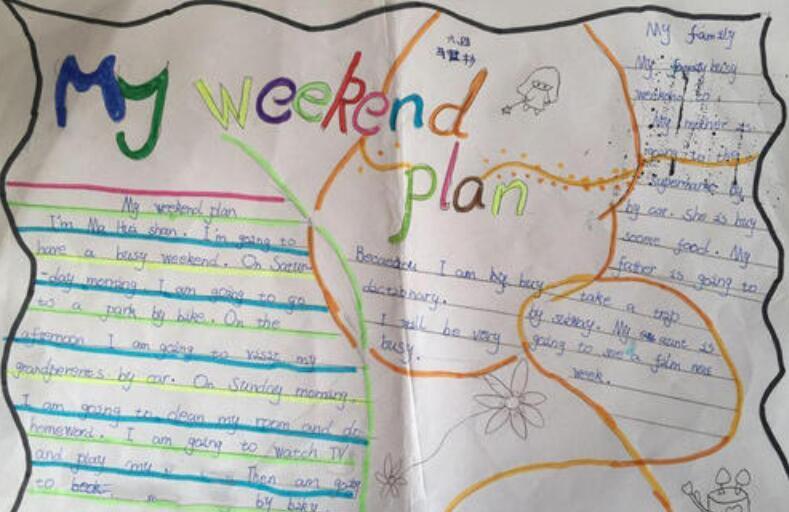 My weekend
plan
六四
My weekend plan
I'm Ma Hua shan. I'm going to
have a busy weekend. On Satur
-day morning, I am going to go
to a park by bike. On the
afternoon I am going to visit my
grandparents by car. On Sunday morning.
I am going to clean my room and do
homeword. I am going to watch TV
and play my Then am going
to book by
I am by buy
dictabnary.
I will be very
busy.
My family
My busy
weekend to.
My mother is
going to the
supermarke by
by car. She is buy
some food. My
father is going to
take a trip
by subway. My aunt is
going to see a film next
week.